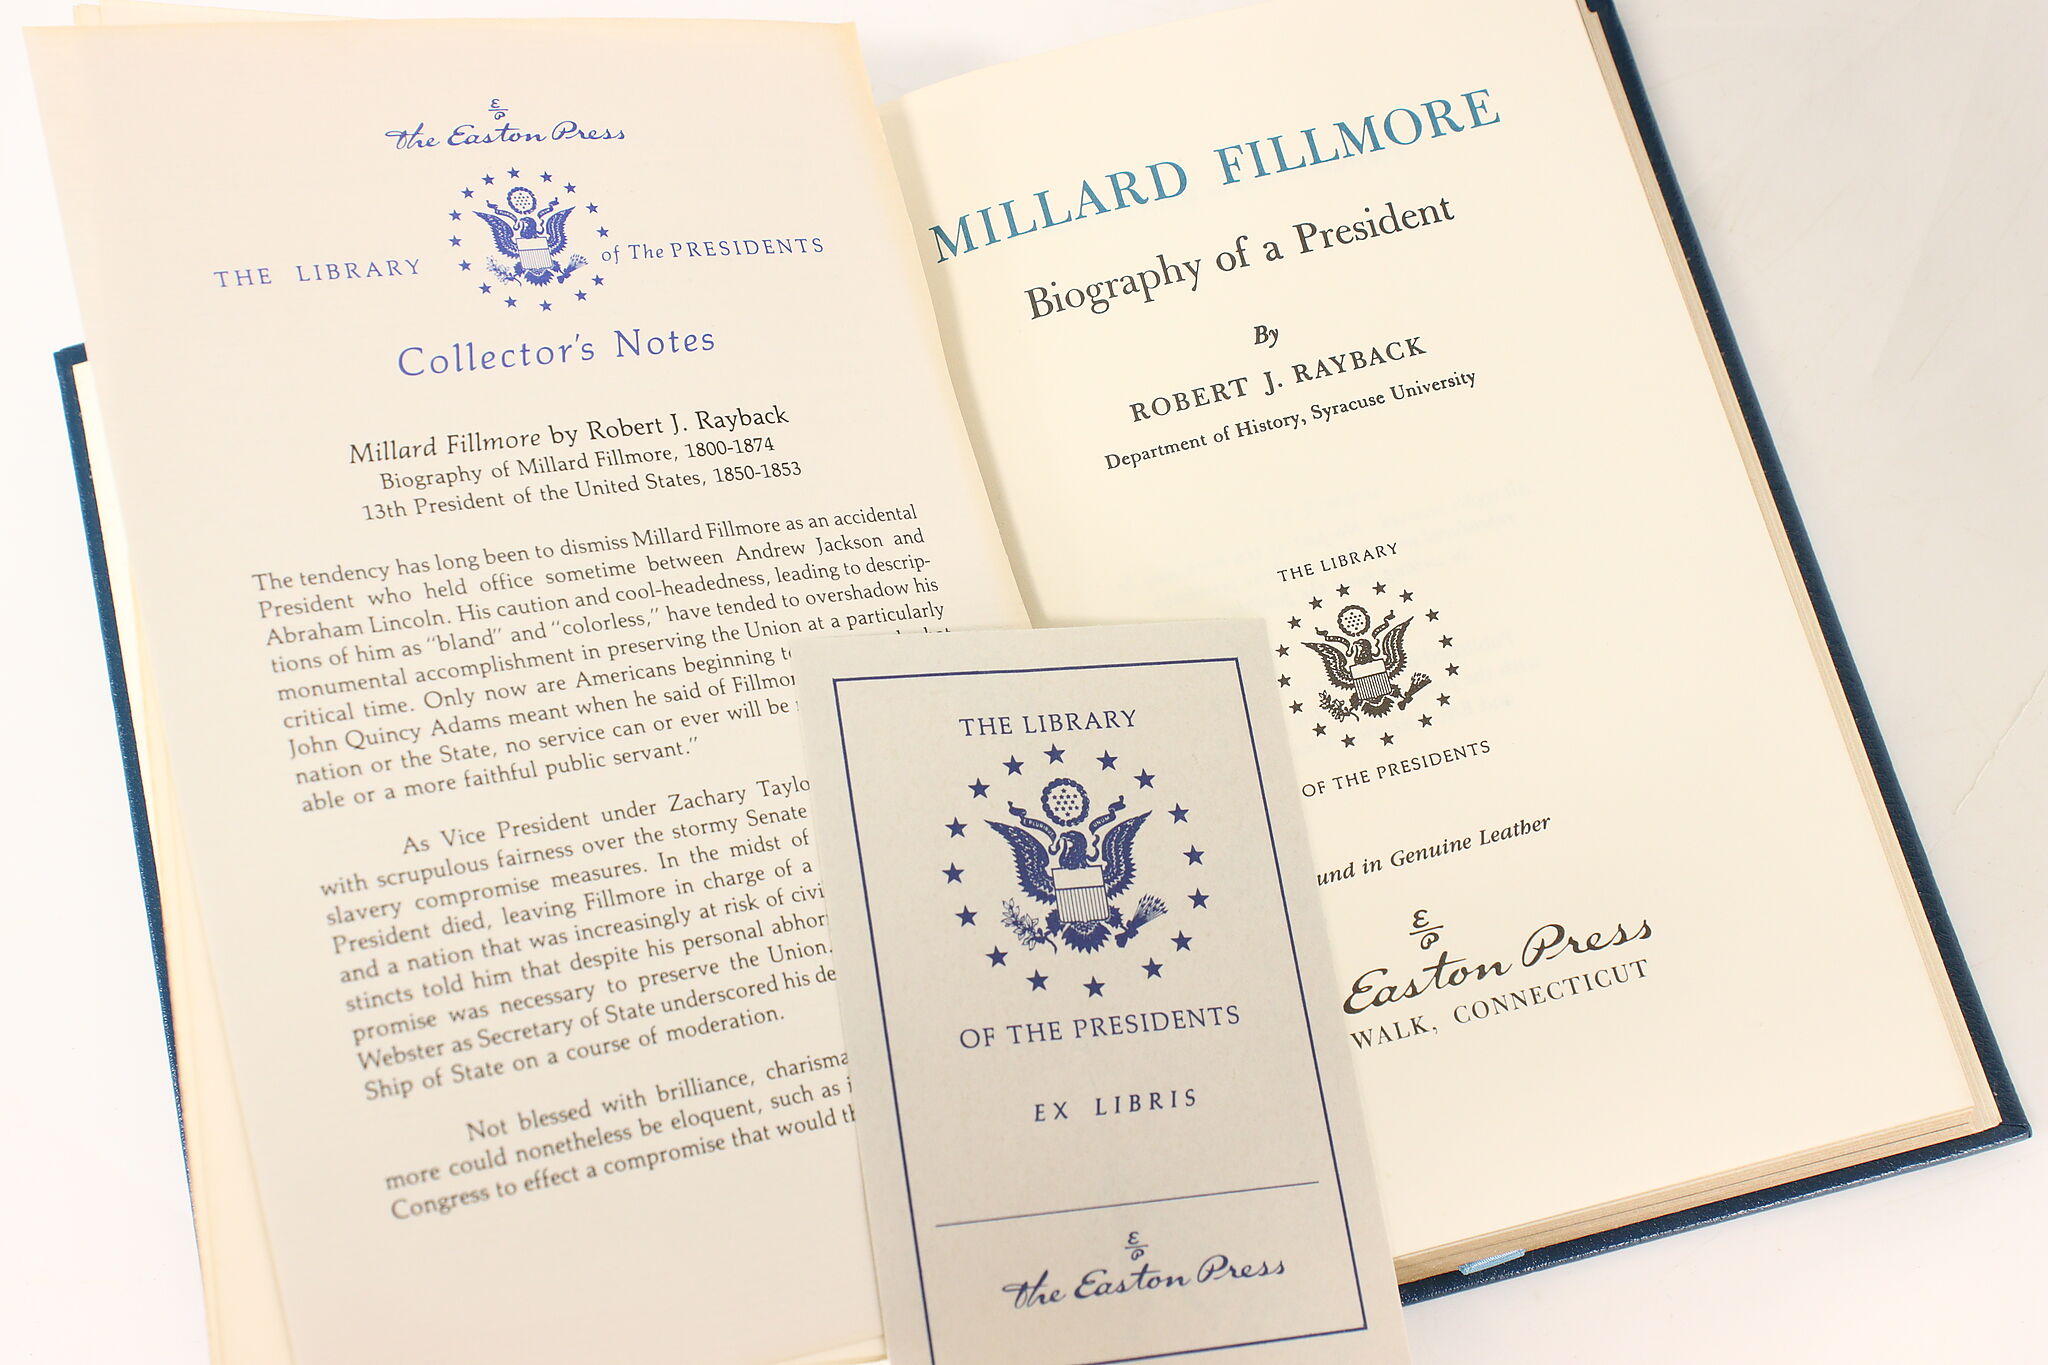 The Easton Press
THE LIBRARY of The PRESIDENTS
Collector's Notes
Millard Fillmore by Robert J. Rayback
Biography of Millard Fillmore, 1800-1874
13th President of the United States, 1850-1853
The tendency has long been to dismiss Millard Fillmore as an accidental
President who held office sometime between Andrew Jackson and
Abraham Lincoln. His caution and cool-headedness, leading to descrip-
tions of him as "bland" and "colorless," have tended to overshadow his
monumental accomplishment in preserving the Union at a particularly
critical time. Only now are Americans beginning
John Quincy Adams meant when he said of
nation or the State, no service can or ever will be
able or a more faithful public servant."
As Vice President under Zachary
with scrupulous fairness over the stormy Senate
slavery compromise measures. In the midst of
President died, leaving Fillmore in charge of a
and a nation that was increasingly at risk of
stincts told him that despite his personal
promise was necessary to preserve the Union.
Webster as Secretary of State underscored his
Ship of State on a course of moderation.
Not blessed with brilliance,
more could nonetheless be eloquent, such as
Congress to effect a compromise that would
MILLARD FILLMORE
Biography of a President
By
ROBERT J. RAYBACK
Department of History, Syracuse University
THE LIBRARY
OF THE PRESIDENTS
und in Genuine Leather
Easton Press
WALK, CONNECTICUT
THE LIBRARY
E PLURIBUS UNUM
OF THE PRESIDENTS
EX LIBRIS
The Easton Press